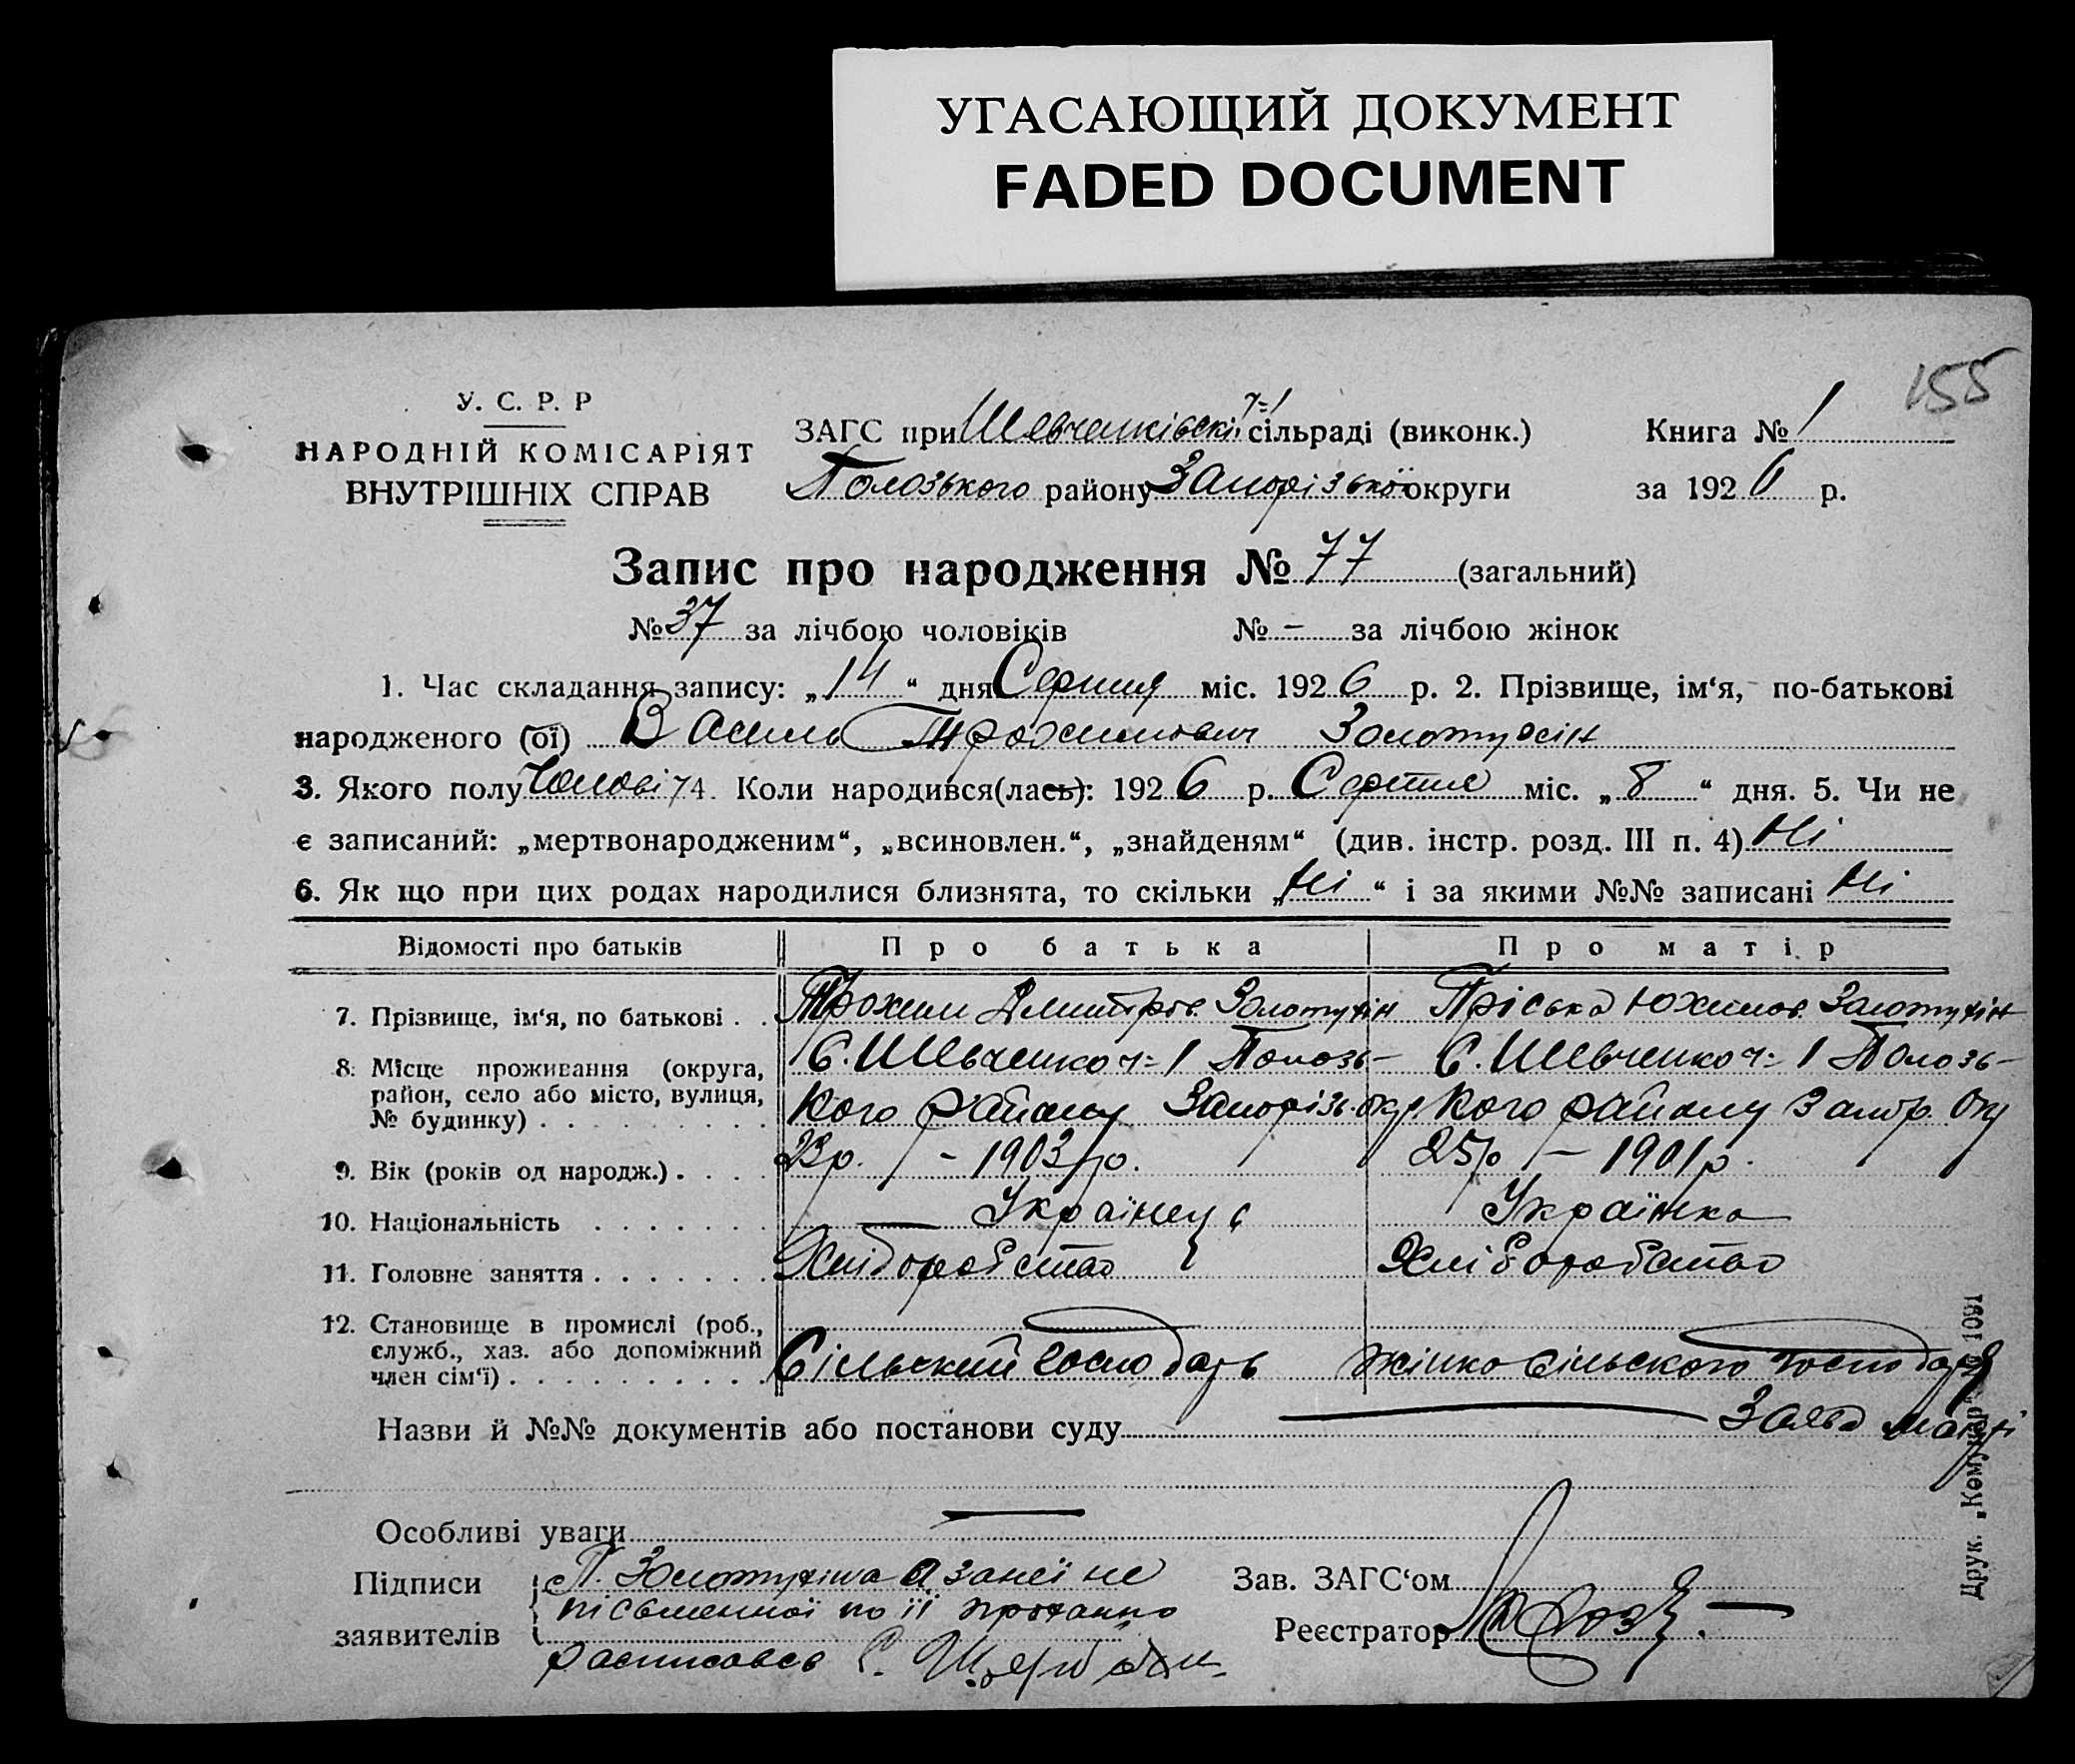 УГАСАЮЩИЙ ДОКУМЕНТ
FADED DOCUMENT
155
У. С. Р. Р
НАРОДНІЙ КОМІСАРІЯТ
ВНУТРІШНІХ СПРАВ
ЗАГС при Шевченківскій ч=1 сільраді (виконк.)
Полозького району Запорізької округи
Книга № 1
за 1926 р.
Запис про народження № 77 (загальний)
№ 37 за лічбою чоловіків № – за лічбою жінок
1. Час складання запису: „14“ дня Серпня міс. 1926 р. 2. Прізвище, ім‘я, по-батькові
народженого (ої) Василь Трохимович Золотухін
3. Якого полу Чолові 4. Коли народився(лась): 1926 р. Серпня міс. „8“ дня. 5. Чи не
є записаний: „мертвонародженим“, „всиновлен.“, „знайденям“ (див. інстр. розд. III п. 4) Ні
6. Як що при цих родах народилися близнята, то скільки „Ні“ і за якими №№ записані Ні
Відомості про батьків Про батька Про матір
7. Прізвище, ім‘я, по батькові . . Трохим Дмитров. Золотухін Пріська Юхимов. Золотухін
8. Місце проживання (округа,
район, село або місто, вулиця,
№ будинку) . . . . . . . . .
С. Шевченко ч=1 Полозь–
кого району Запорізь. окр.
С. Шевченко ч=1 Полозь–
кого району Запор. Окр
9. Вік (років од народж.) . . . . 23р. – 1903 р. 25р – 1901 р.
10. Національність . . . . . . . Українець Українка
11. Головне заняття . . . . . . . Хліборобство Хліборобство
12. Становище в промислі (роб.,
служб., хаз. або допоміжний
член сім‘ї) . . . . . . . . . . .
Сільський господарь
жінка сільского господаря
Назви й №№ документів або постанови суду Заява матері
Особливі уваги
Підписи
заявителів
П. Золотухіна а за неї не
пісьменної по її проханню
расписався С. Щерб
Зав. ЗАГС‘ом
Реєстратор
Друк. „Комунар“ № 1091